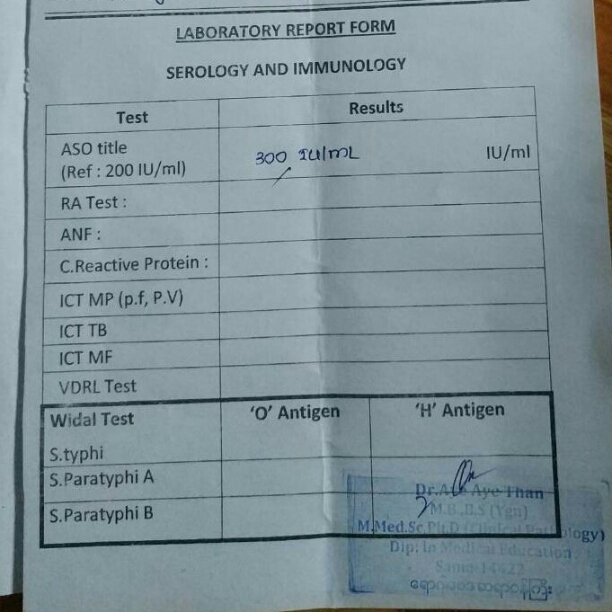 LABORATORY REPORT FORM
SEROLOGY AND IMMUNOLOGY
Test Results
ASO title 300 IU/mL IU/ml
(Ref : 200 IU/ml)
RA Test :
ANF :
C.Reactive Protein :
ICT MP (p.f, P.V)
ICT TB
ICT MF
VDRL Test
Widal Test 'O' Antigen 'H' Antigen
S.typhi
S.Paratyphi A
S.Paratyphi B
Aye Than
M.B.,B.S (Ygn)
M.Med.Sc,Ph.D (Clinical Pathology)
Dip: in Medical Education